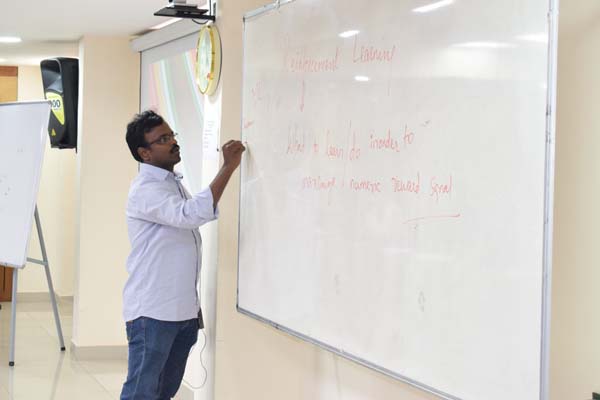 Reinforcement Learning
What to learn/do inorder to
maximize numeric reward signal